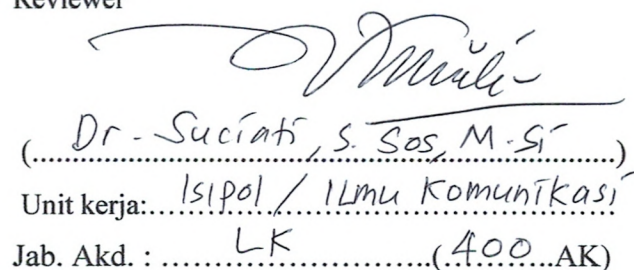 Reviewer
(Dr. Suciati, S. Sos, M. Si)
Unit kerja: Isipol / Ilmu Komunikasi
Jab. Akd. : LK (400 AK)